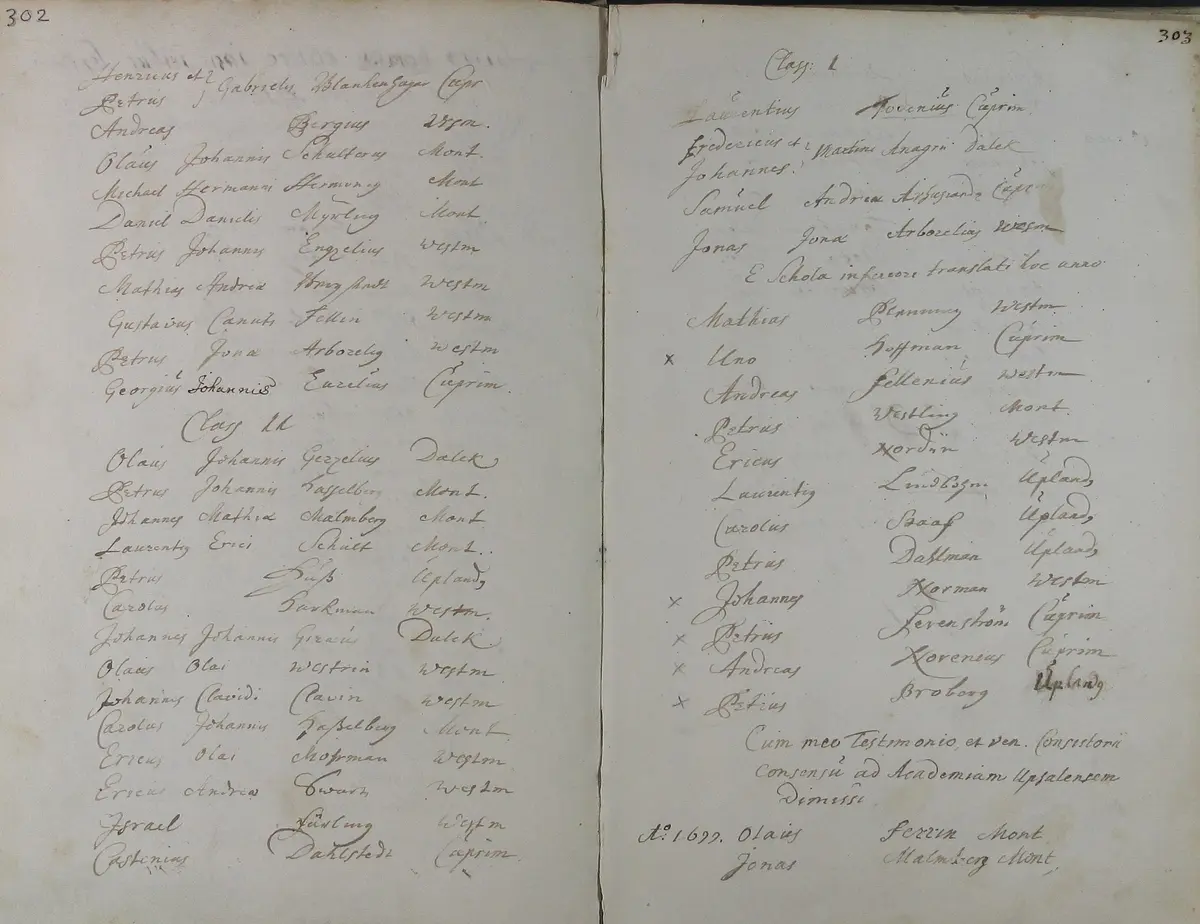 302
Henricus et
Petrus } Gabrielis Blankenhager Cupr
Andreas Bergius Wesm.
Olaüs Johannis Schulterus Mont.
Michael Hermanni Mont
Daniel Danielis Mont
Petrus Johannis Engzelius Westm
Mathias Andreæ Westm
Gustavus Canuti Fellin Westm
Petrus Jonæ Arborelig Westm
Georgiüs Johannis Eurelius Cüprim.
Class II
Olaus Johannis Gezzelius Dalek
Petrus Johannis Hasselberg Mont.
Johannes Mathiæ Malmberg Mont
Laurentig Erici Schült Mont.
Petrus Uplandg
Carolus Barkman Westm.
Johannes Johannis Dalek
Olaus Olai Westrin Westm
Johannes Clavidi Clavin Westm
Carolus Johannis Haßelberg Mont
Ericus Olai Mohrman Westm
Ericus Andreæ Swartz Westm
Israel Westm
Castenius Dahlstedt Cuprim
303
Class: I
Laürentius Cüprim
Fredericus et
Johannes } Martini Anagrii Dalek
Samüel Andreæ Cupr
Jonas Jonæ Arborelius Westm
E Schola inferiore translati hoc anno
Mathias Westm
x Uno Hoffman Cüprim
Andreas Felleniüs Westm
Petrus Westling Mont
Ericus Nordün Westm
Laurentig Lindbohm Üplandg
Carolus Staaf Üplandg
Petrus Dahlman Üplandg
x Johannes Norman Westm
x Petrüs Levenström Cüprim
x Andreas Norenius Cüprim
x Petrus Broborg Üplandg
Cüm meo Testimonio et ven. Consistorii
Consensü ad Academiam Upsalensem
Dimissi
Aº: 1699. Olaus Ferrin Mont
Jonas Malmberg Mont